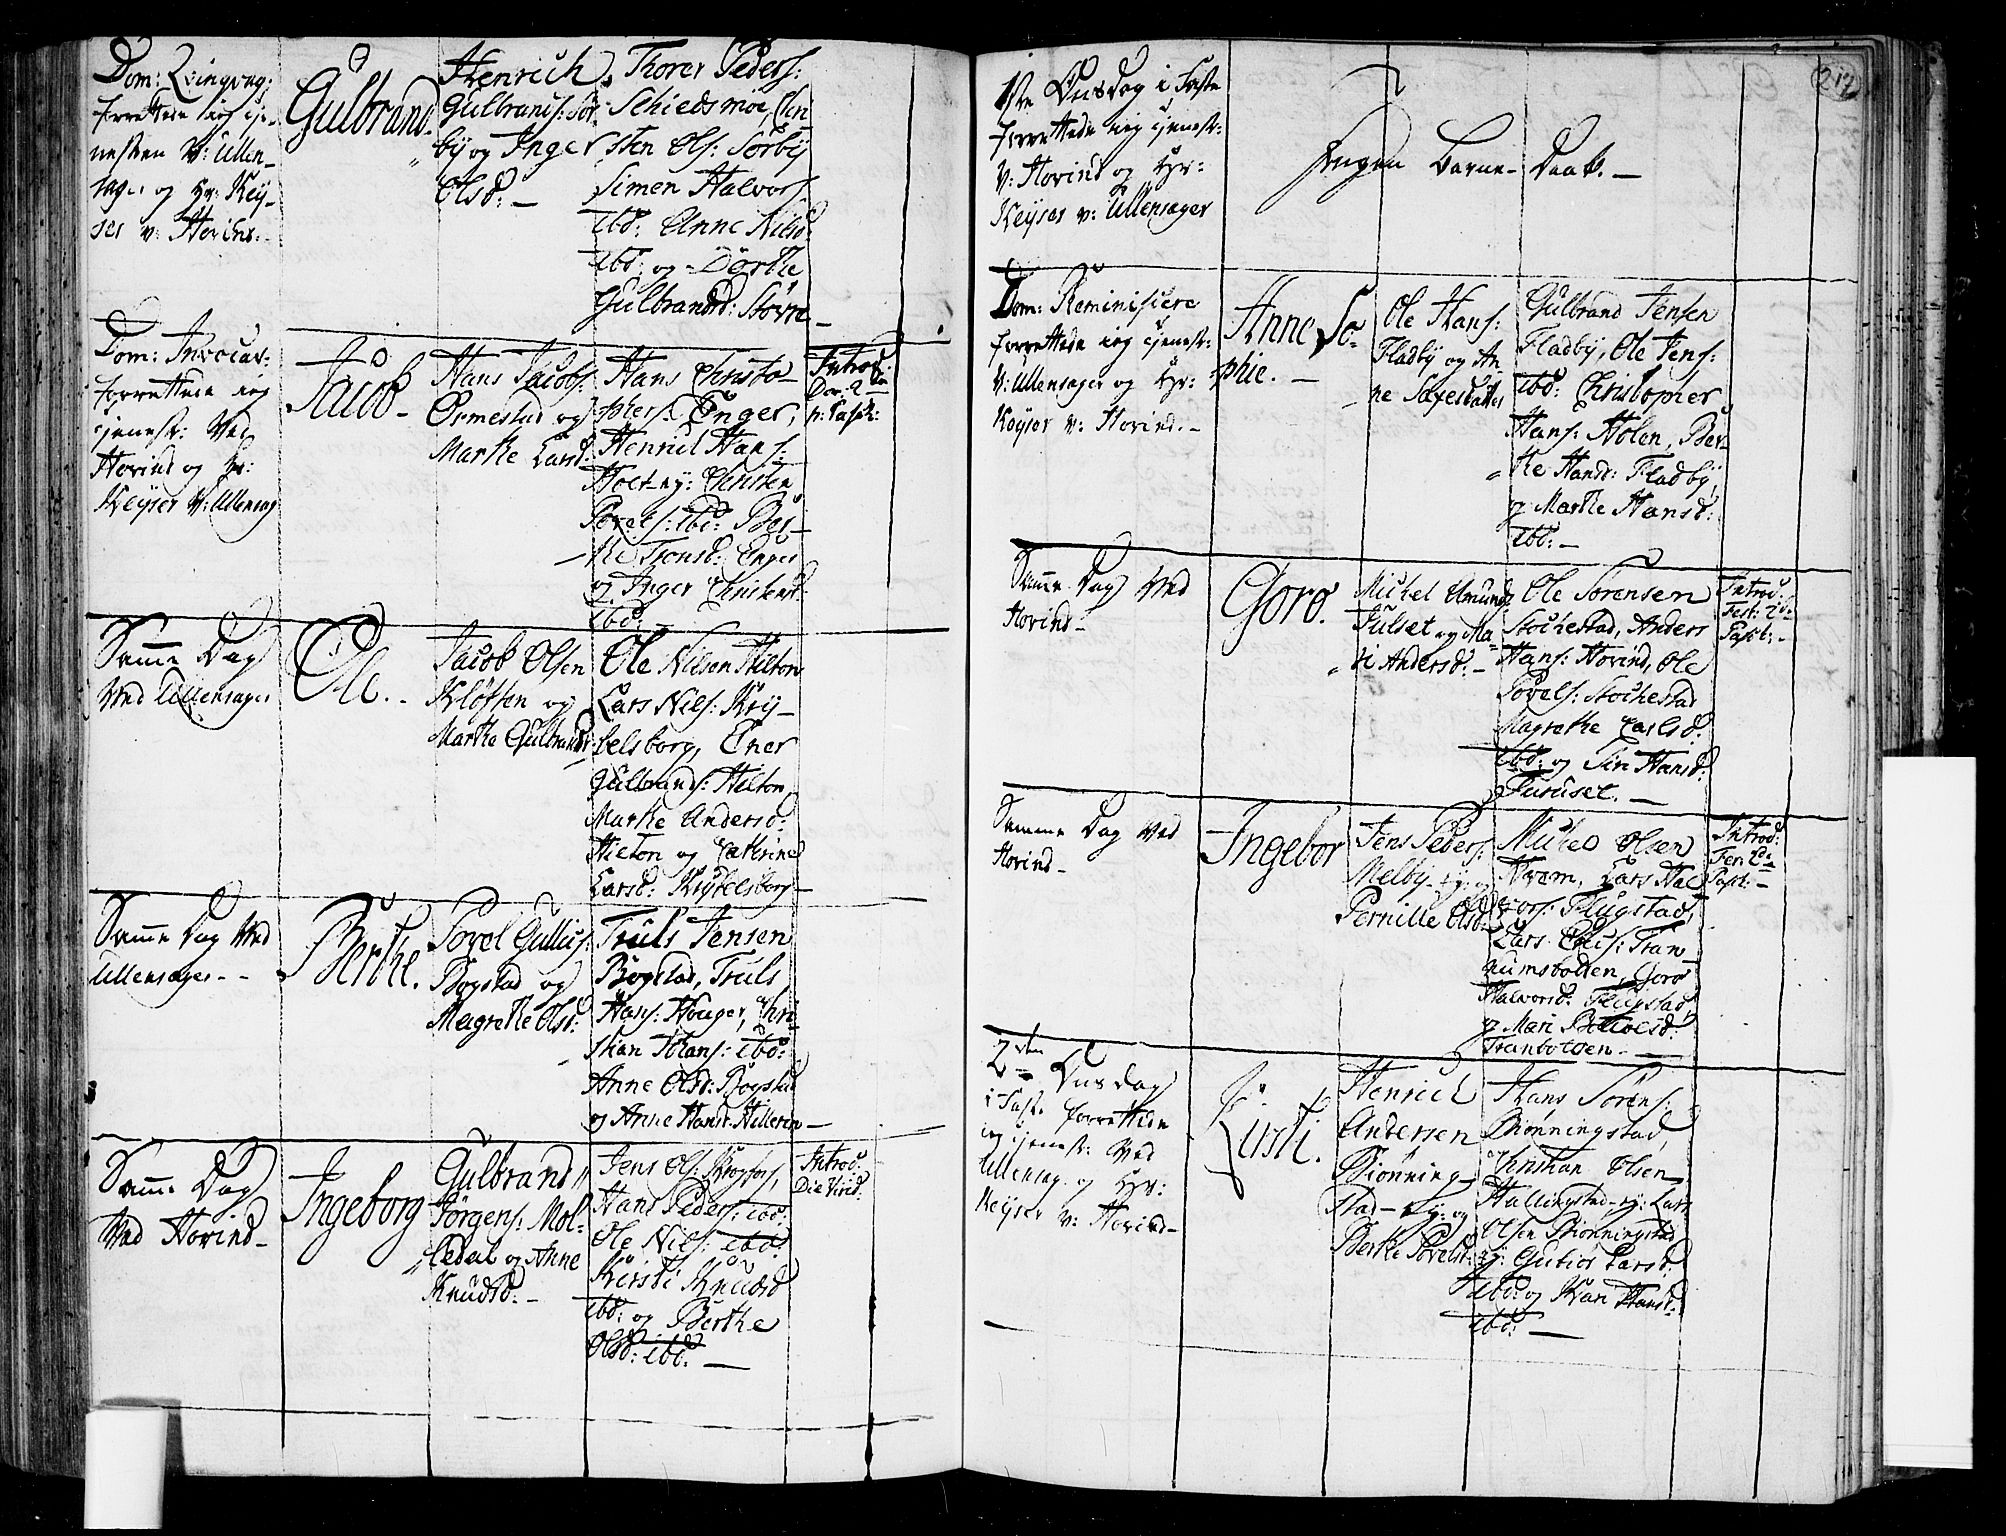 Dom: Qvinqvag:
forrettede ieg tje-
nesten v: Ullen-
sager og Hr: Key-
ser v: Hovind.
Gulbrand.
Henrich
Gulbrands: Sör-
by og Inger
Olsd: -
Thorer Peders:
Schiedsmoe, Chri-
sten Ols: Sörby
Simen Halvors:
ibd: Anne Nilsd:
ibd: og Dorthe
Gulbrandsd: Stovre
Dom: Invocav:
forrettede ieg
tjenest: ved
Hovind og Hr:
Keyser v: Ullensag
Jacob
Hans Jacobs:
Ormestad og
Marthe Larsd:
Hans Christo-
phers: Enger,
Henric Hans:
Holt-ny: Christen
Povels: ibd: Ber-
the Tronsd: Enger
og Inger Christensd:
ibd:
Introd:
Dom: 2
p: Pasch:
Samme Dag
ved Ullensager
Ole.
Jacob Olsen
Kløften og
Marthe Gulbrandsd
Ole Nilsen Hilton
Lars Nils: Kry-
belsborg, Ener
Gulbrands: Hilton
Marthe Andersd:
Hilton og Cathrine
Larsd: Krybelsborg
Samme Dag ved
Ullensager -
Berthe.
Povel Gullics:
Bogstad og
Magrethe Olsd:
Truls Jensen
Bogstad, Truls
Hans: Houger, Chri-
stian Johans: ibd:
Anne Olsd: Bogstad
og Anne Hansd: Hilleren
Samme Dag
ved Hovind
Ingeborg
Gulbrand
Jörgens: Mol-
dedal og Anne
Knudsd. -
Jens Ols: Krogfos,
Hans Peders: ibd:
Ole Nils: ibd:
Kirsti Knudsd
ibd: og Berthe
Olsd: ibd: -
Introd:
Die Virid:
212
1ste Onsdag i Faste
forrettede ieg tjenest:
v: Hovind og Hr:
Keyser v: Ullensager
Ingen Barne-Daab. -
Dom: Reminiscere
forrettede ieg tjenest:
v: Ullensager og Hr:
Keyser v: Hovind. -
Anne So-
phie. -
Ole Hans:
Fladby og An-
ne
Gulbrand Jensen
Fladby, Ole Jens:
ibd: Christopher
Hans: Holen, Ber-
the Hansd: Fladby,
og Marthe Hansd:
ibd: -
Samme Dag ved
Hovind -
Goro.
Michel Amunds:
Julset og Ma-
ri Andersd: -
Ole Sörensen
Stochestad, Anders
Hans: Hovind, Ole
Povels: Stochestad
Magrethe Carlsd:
ibd: og Siri Hansd:
Furuset. -
Introd:
Fest: 2d:
Pasch: -
Samme Dag ved
Hovind -
Ingebor
Jens Peders:
Melby - ey: og
Pernille Olsd:
Michel Olsen
Kvam, Lars Hal-
vors: Flugstad,
Lars
Goro
Halvorsd: Flugstad,
og Mari
Introd:
Fer: 2d:
Pasch: -
2den Onsdag
i Fast. forrettede
ieg tjenest: ved
Ullensag. og Hr:
Keyser v: Hovind -
Kirsti.
Henric
Andersen
Biönning-
stad - ey: og
Berthe Povelsd:
Hans Sörens:
Biönningstad,
Christian Olsen
Hallingstad-ey: Lars
Olsen Biönningstad
ey: Gubiör Larsd:
ibd: og Kari Hansd:
ibd: -